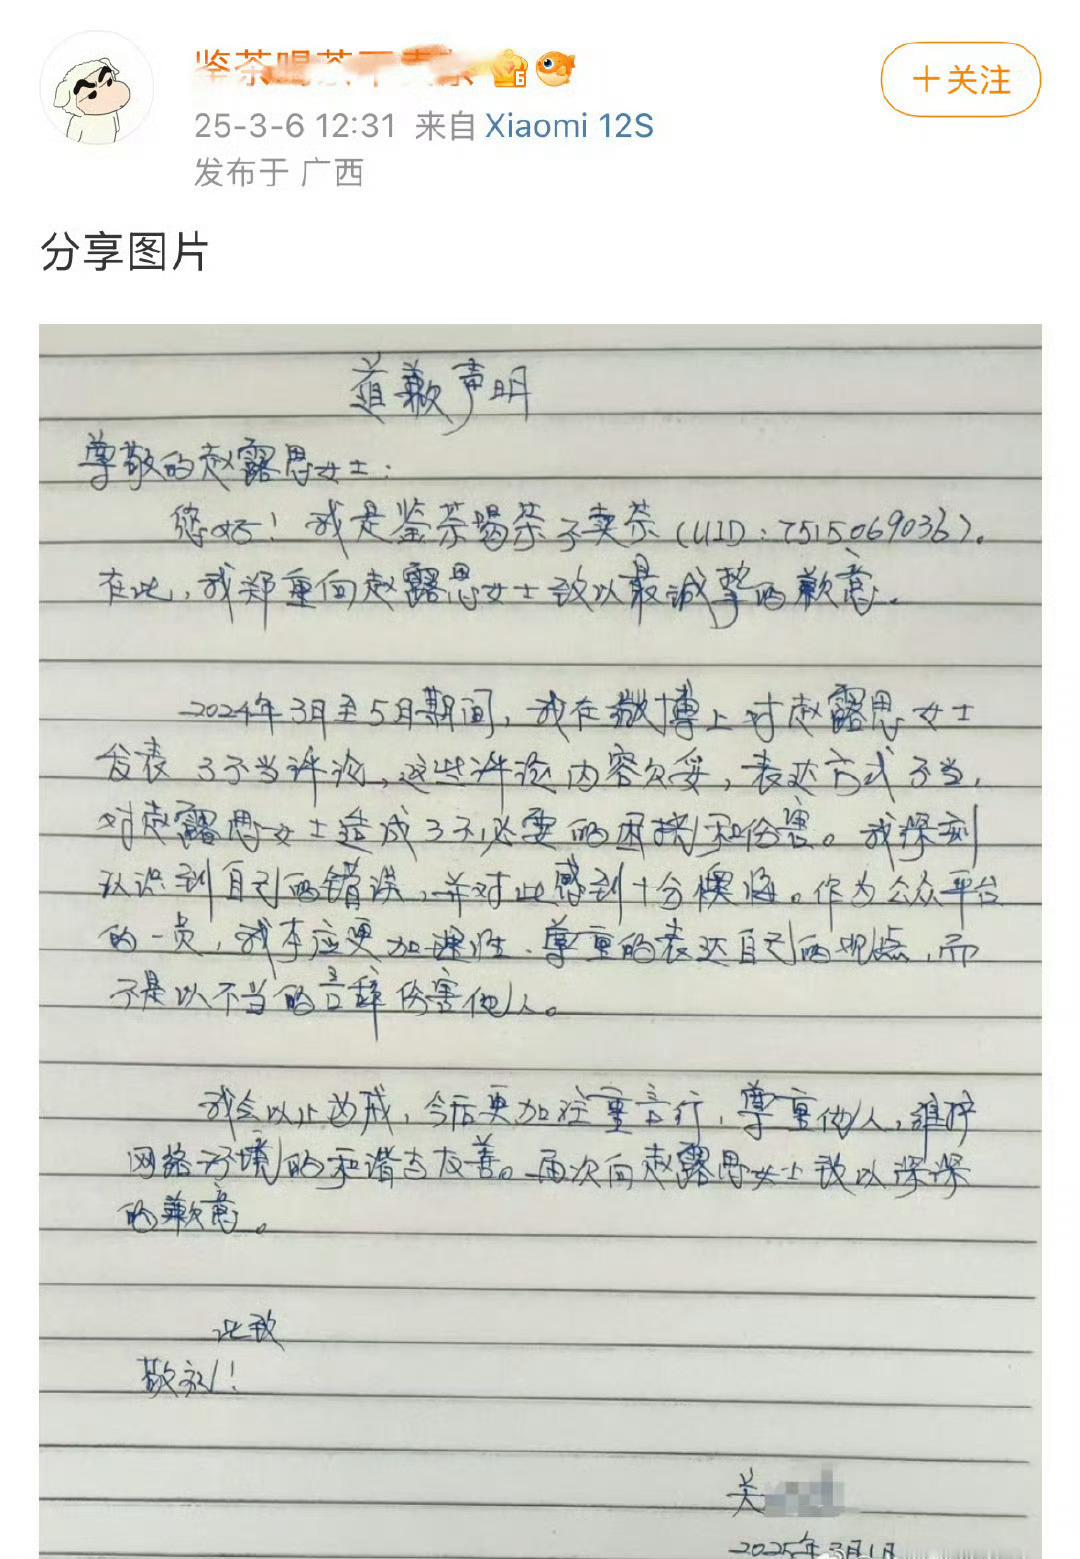 25-3-6 12:31 来自 Xiaomi 12S
发布于 广西
+关注
分享图片
道歉声明
尊敬的赵露思女士:
您好!我是鉴茶喝茶不卖茶(UID:7515069036)。
在此,我郑重向赵露思女士致以最诚挚的歉意。
2024年3月至5月期间,我在微博上对赵露思女士
发表了不当评论,这些评论内容欠妥,表达方式不当,
对赵露思女士造成了不必要的困扰和伤害。我深刻
认识到自己的错误,并对此感到十分懊悔。作为公众平台
的一员,我本应更加理性、尊重的表达自己的观点,而
不是以不当的言辞伤害他人。
我会以此为戒,今后更加注重言行,尊重他人,维护
网络环境的和谐与友善。再次向赵露思女士致以深深
的歉意。
此致
敬礼!
关
2025年3月1日